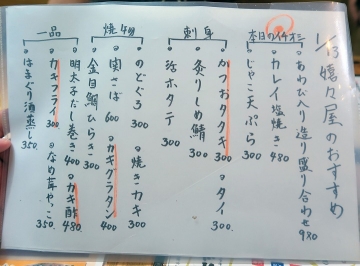 1/13 嬉々屋のおすすめ
本日のイチオシ
あわび入り造り盛り合わせ 970
カレイ塩焼き 480
じゃこ天ぷら 300
刺身
かつおタタキ 300
・タイ 300
炙りしめ鯖 300
活ホタテ 300
焼物
のどぐろ 300
・焼きカキ 300
関さば 600
・カキグラタン 400
金目鯛ひらき 300
一品
明太子だし巻き 400
・カキ酢 480
カキフライ 300
・なめ茸やっこ 350
はまぐり酒蒸し 350